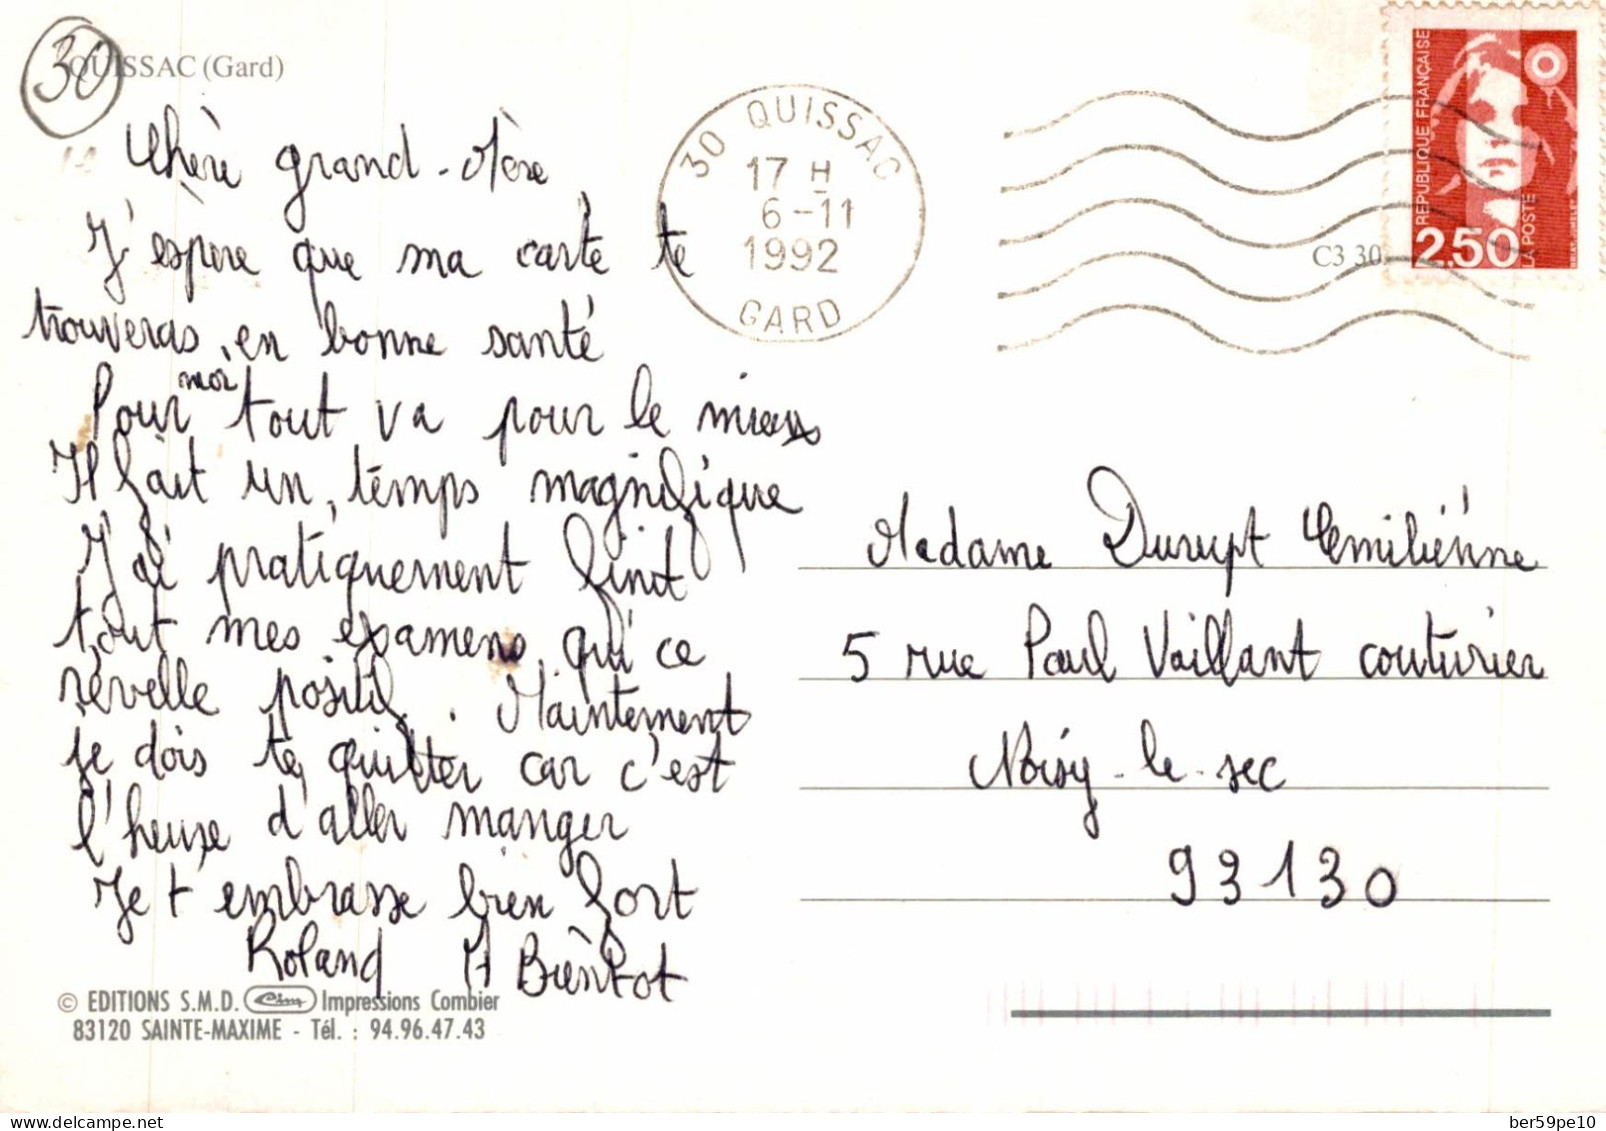 30
QUISSAC (Gard)
Chère grand-Mère
J'espère que ma carte te
trouveras en bonne santé
Pour moi tout va pour le mieux
Il fait un temps magnifique
J'ai pratiquement finit
tout mes examens qui ce
révelle positif. Maintement
je dois te quitter car c'est
l'heure d'aller manger
Je t'embrasse bien fort
Roland A Bientot
© EDITIONS S.M.D. Cim Impressions Combier
83120 SAINTE-MAXIME - Tél. : 94.96.47.43
30 QUISSAC
17 H
6-11
1992
GARD
C3 30
REPUBLIQUE FRANÇAISE
2,50
LA POSTE
Madame Durupt Emiliénne
5 rue Paul Vaillant couturier
Noisy-le-sec
93130
delcampe.net
ber59pe10